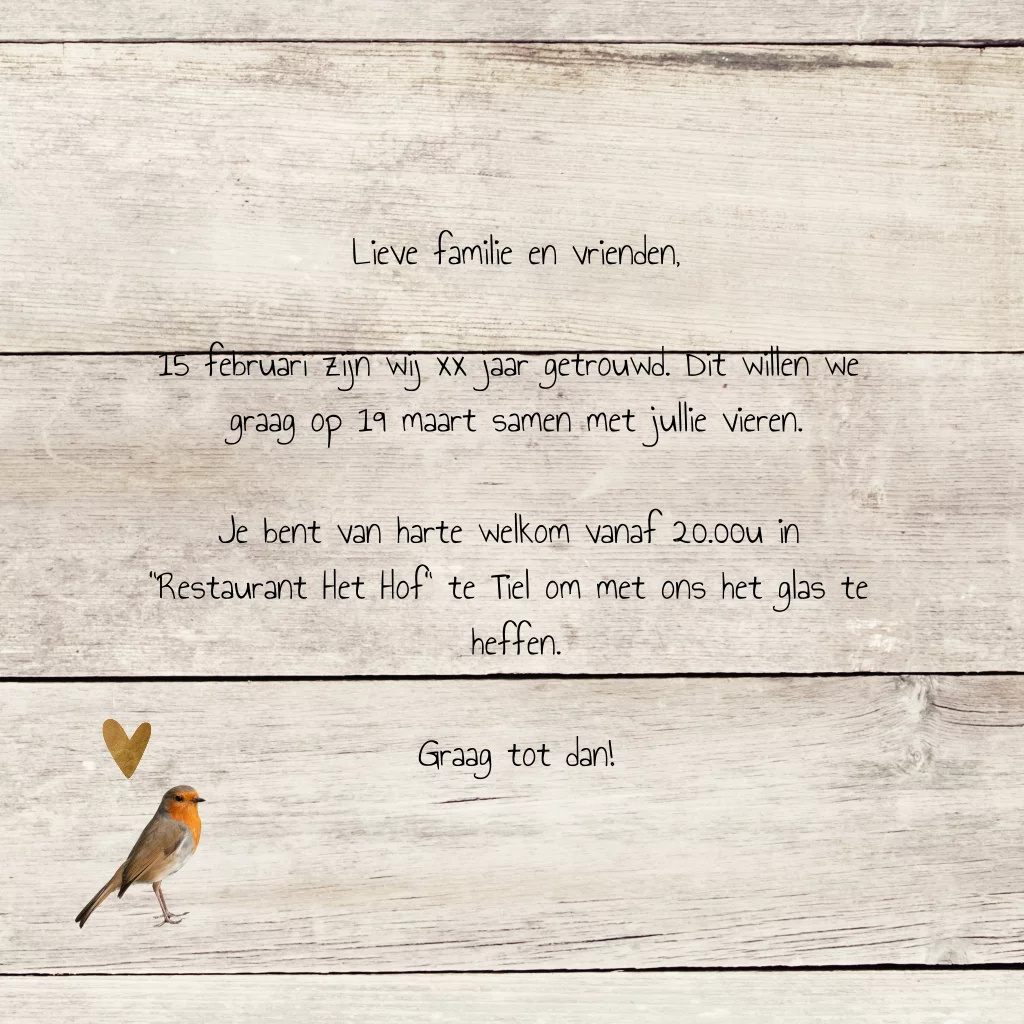 Lieve familie en vrienden,
15 februari zijn wij xx jaar getrouwd. Dit willen we
graag op 19 maart samen met jullie vieren.
Je bent van harte welkom vanaf 20.00u in
"Restaurant Het Hof" te Tiel om met ons het glas te
heffen.
Graag tot dan!